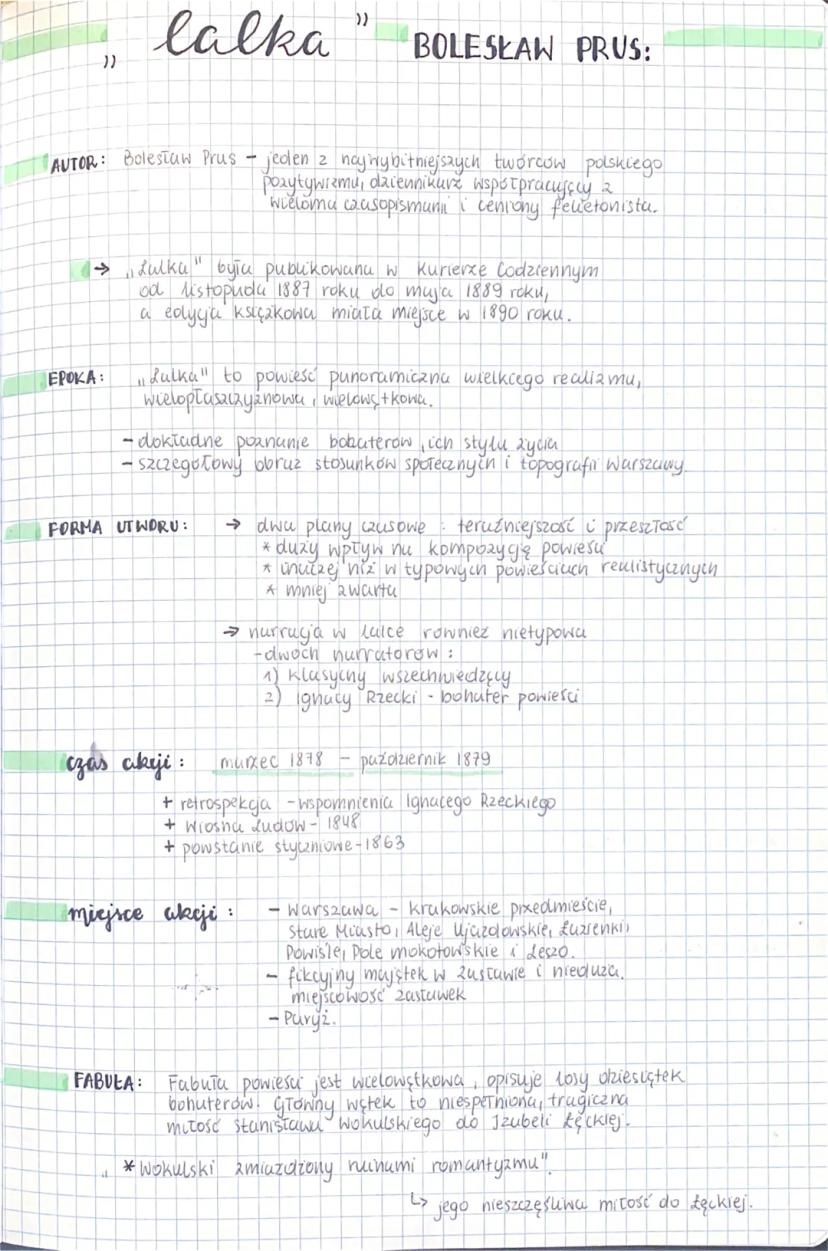 „lalka" BOLESŁAW PRUS:
AUTOR: Bolesław Prus – jeden z najwybitniejszych twórców polskiego
pozytywizmu, dziennikarz współpracujący z
wieloma czasopismami i ceniony felietonista.
→ „Lalka" była publikowana w Kurierze Codziennym
od listopada 1887 roku do maja 1889 roku,
a edycja książkowa miała miejsce w 1890 roku.
EPOKA: „Lalka" to powieść panoramiczna wielkiego realizmu,
wielopłaszczyznowa i wielowątkowa.
- dokładne poznanie bohaterów, ich stylu życia
- szczegółowy obraz stosunków społecznych i topografii Warszawy.
FORMA UTWORU: → dwa plany czasowe: teraźniejszość i przeszłość
* duży wpływ na kompozycję powieści
* inaczej niż w typowych powieściach realistycznych
* mniej zwarta
→ narracja w lalce również nietypowa
- dwóch narratorów:
1) klasyczny wszechwiedzący
2) Ignacy Rzecki - bohater powieści
czas akcji: marzec 1878 – październik 1879
+ retrospekcja - wspomnienia Ignacego Rzeckiego
+ Wiosna Ludów - 1848
+ powstanie styczniowe - 1863
miejsce akcji: - Warszawa - krakowskie przedmieście,
Stare Miasto, Aleje Ujazdowskie, Łazienki,
Powiśle, Pole mokotowskie i Leszo.
- fikcyjny majątek w Zasławie i nieduża,
miejscowość zasławek
- Paryż.
FABUŁA: Fabuła powieści jest wielowątkowa, opisuje losy dziesiątek
bohaterów. Główny wątek to niespełniona, tragiczna
miłość Stanisława Wokulskiego do Izabeli Łęckiej.
„ * Wokulski zmiażdżony ruinami romantyzmu".
↳ jego nieszczęśliwa miłość do Łęckiej.